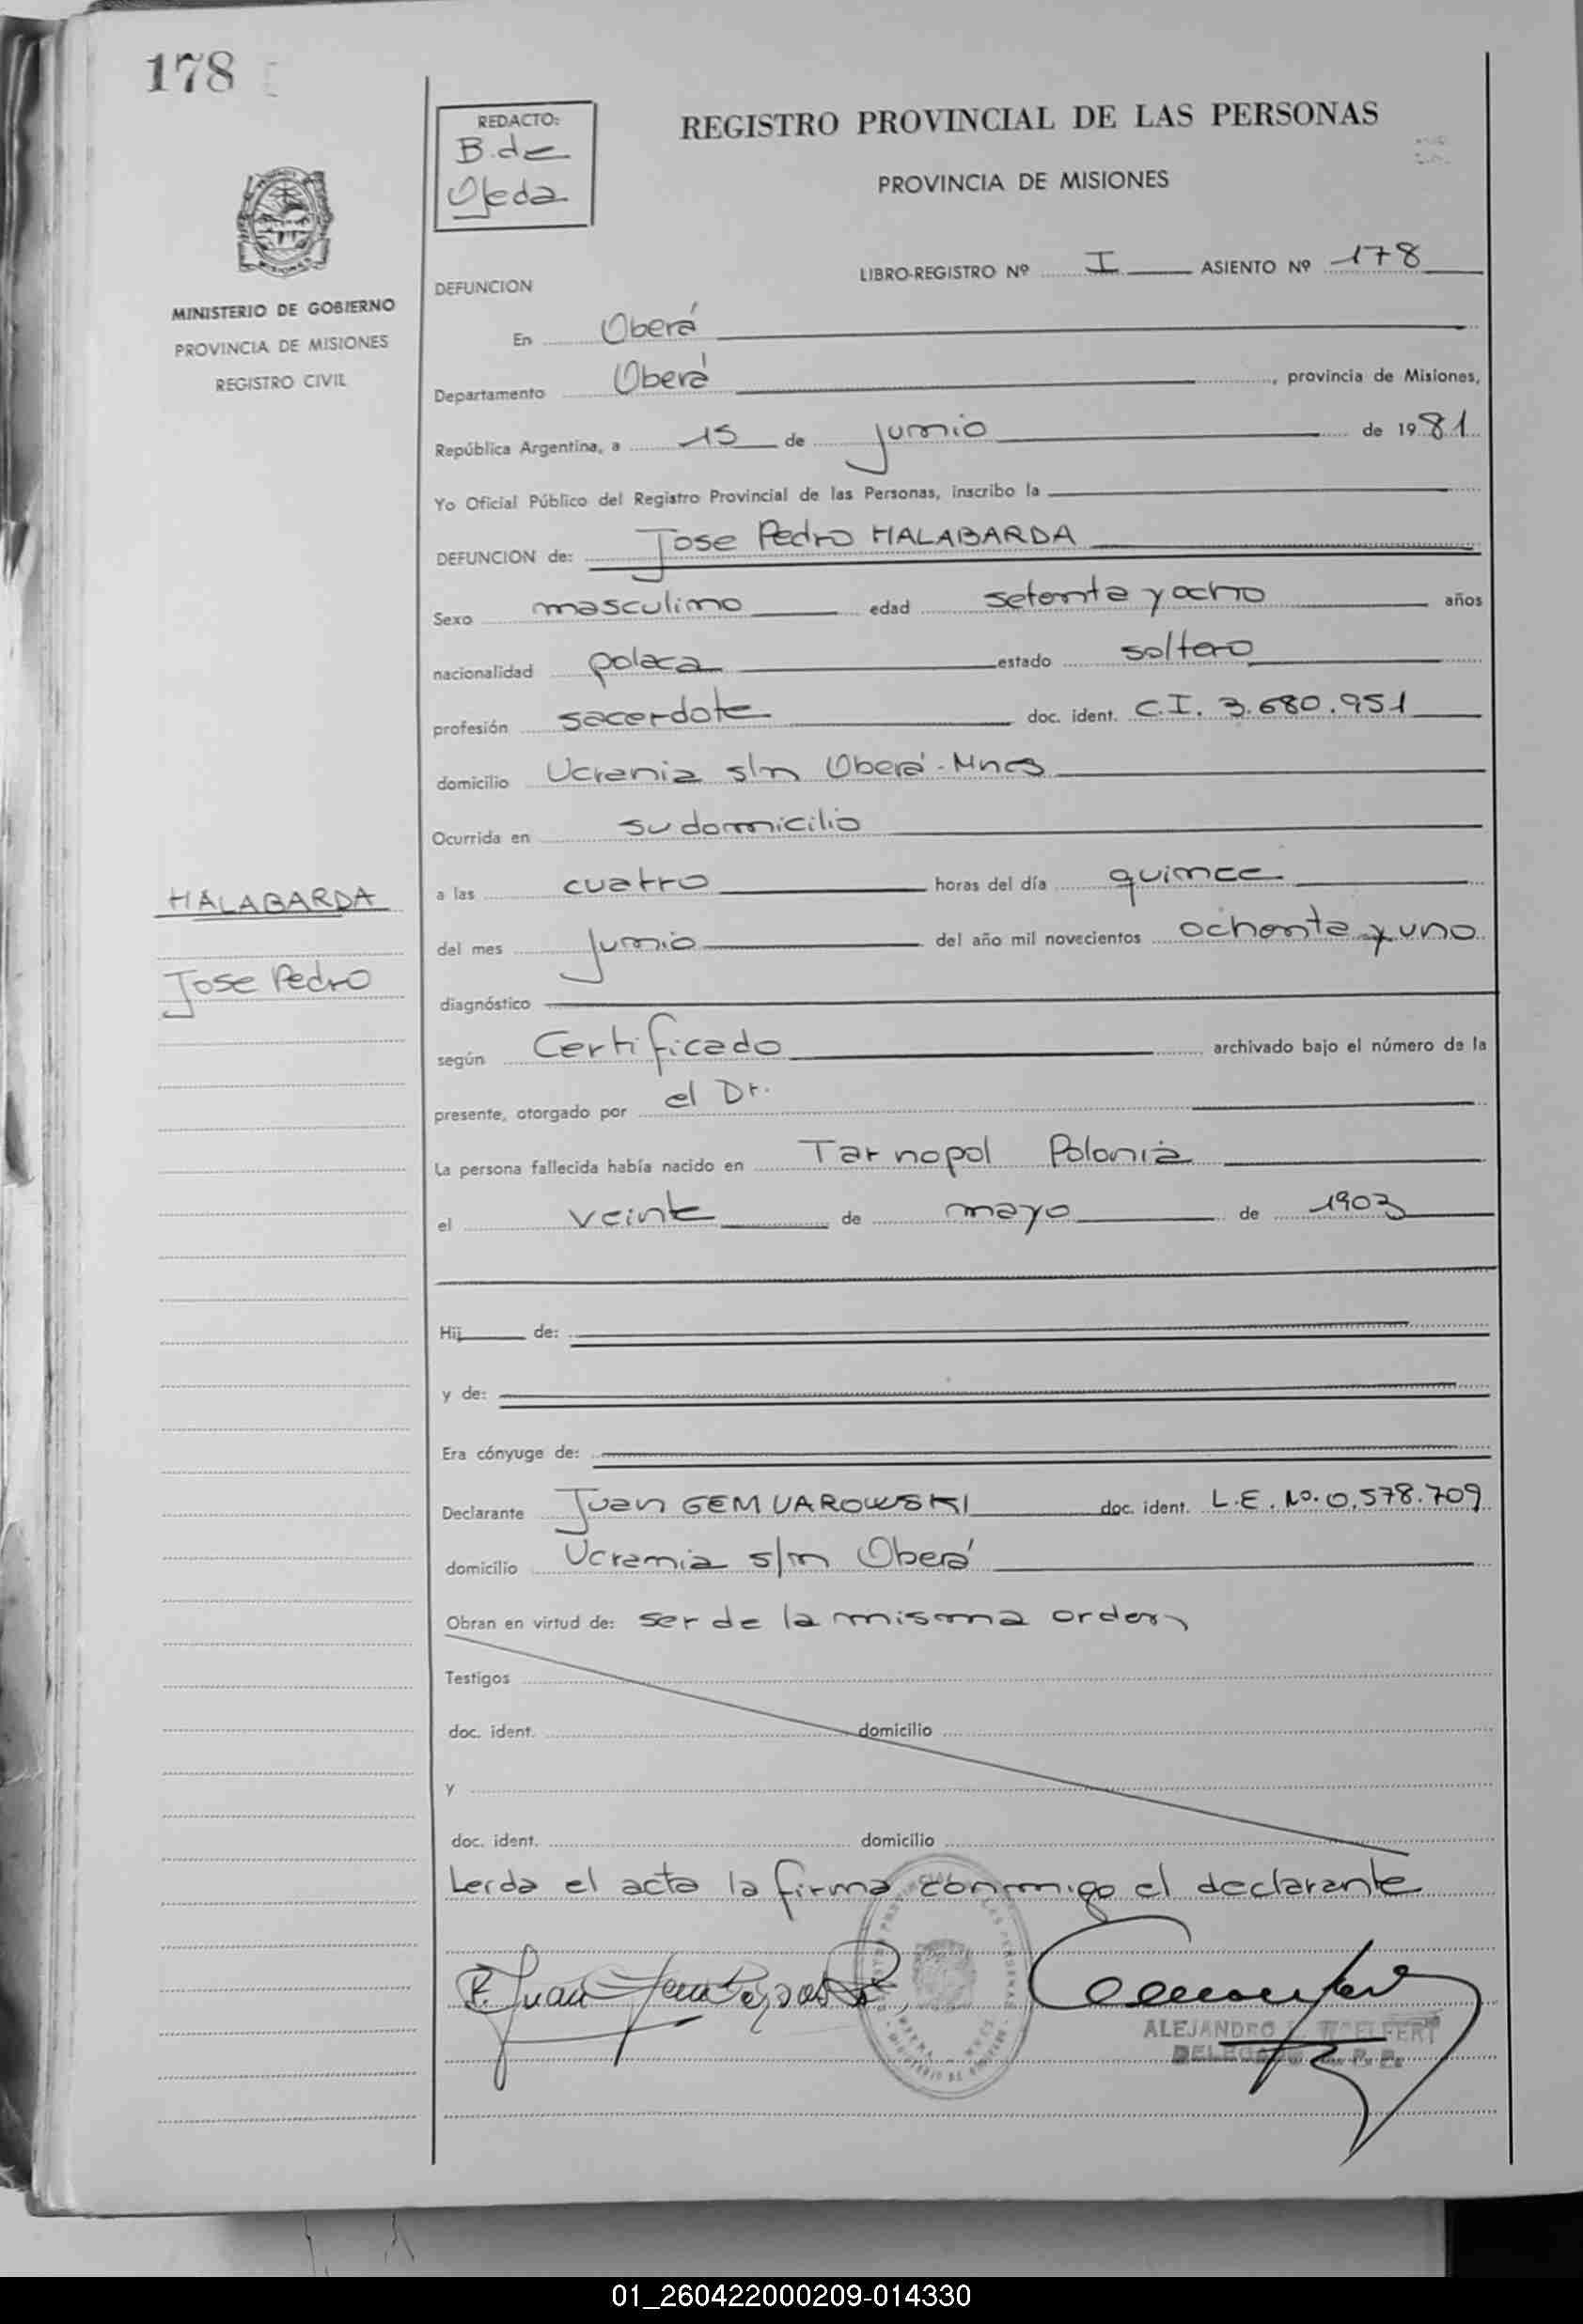 178
REDACTO:
B. de
Ojeda
REGISTRO PROVINCIAL DE LAS PERSONAS
PROVINCIA DE MISIONES
MINISTERIO DE GOBIERNO
PROVINCIA DE MISIONES
REGISTRO CIVIL
LIBRO-REGISTRO Nº I ASIENTO Nº 178
DEFUNCION
En Oberá
Departamento Oberá, provincia de Misiones,
República Argentina, a 15 de junio de 1981
Yo Oficial Público del Registro Provincial de las Personas, inscribo la
DEFUNCION de: Jose Pedro HALABARDA
Sexo masculino edad setenta y ocho años
nacionalidad polaca estado soltero
profesión sacerdote doc. ident. C.I. 3.680.951
domicilio Ucrania s/n Oberá-Mnes
Ocurrida en su domicilio
HALABARDA
Jose Pedro
a las cuatro horas del día quince
del mes junio del año mil novecientos ochenta y uno
diagnóstico
según Certificado archivado bajo el número de la
presente, otorgado por el Dr.
La persona fallecida había nacido en Tarnopol Polonia
el veinte de mayo de 1903
Hij de:
y de:
Era cónyuge de:
Declarante Juan GEMUAROWSKI doc. ident. L.E. No. 0.578.709
domicilio Ucrania s/n Oberá
Obran en virtud de: ser de la misma orden
Testigos
doc. ident. domicilio
y
doc. ident. domicilio
Leida el acta la firma conmigo el declarante
P. Juan
ALEJANDRO
DELEGADO R. P. P.
01_260422000209-014330